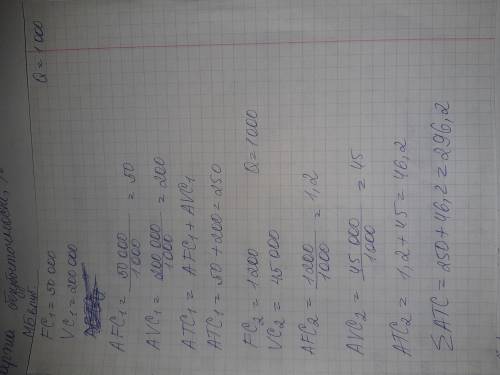 FC₁ = 50 000 Q = 1 000
VC₁ = 200 000
AFC₁ = 50 000 / 1000 = 50
AVC₁ = 200 000 / 1000 = 200
ATC₁ = AFC₁ + AVC₁
ATC₁ = 50 + 200 = 250
FC₂ = 1200 Q = 1000
VC₂ = 45 000
AFC₂ = 1200 / 1000 = 1,2
AVC₂ = 45 000 / 1000 = 45
ATC₂ = 1,2 + 45 = 46,2
∑ATC = 250 + 46,2 = 296,2